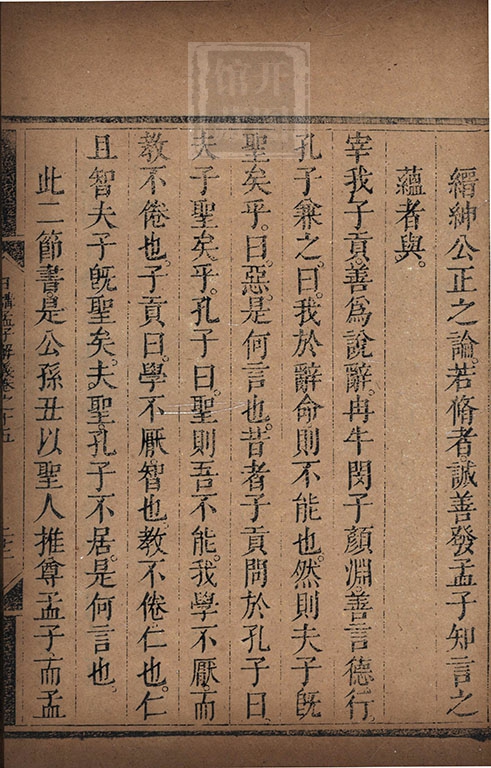 縉紳公正之論。若脩者。誠善發孟子知言之
蘊者與。
宰我子貢。善爲說辭。冉牛閔子顏淵。善言德行。
孔子兼之。曰。我於辭命則不能也。然則夫子旣
聖矣乎。曰。惡。是何言也。昔者子貢問於孔子曰。
夫子聖矣乎。孔子曰。聖則吾不能。我學不厭。而
教不倦也。子貢曰。學不厭智也。教不倦仁也。仁
且智。夫子旣聖矣。夫聖。孔子不居。是何言也。
此二節書。是公孫丑以聖人推尊孟子。而孟
日講孟子解義卷之十五